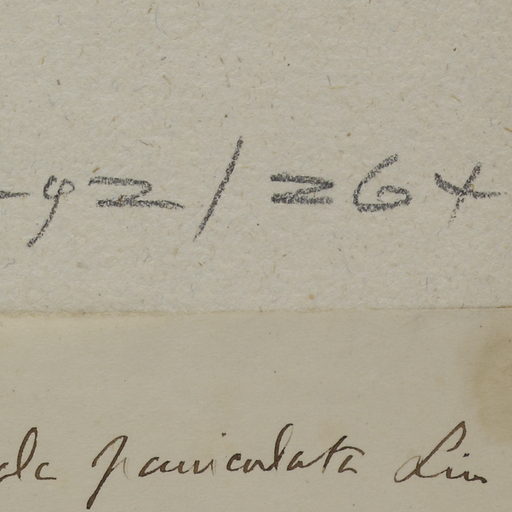 92/264
paniculata Lin